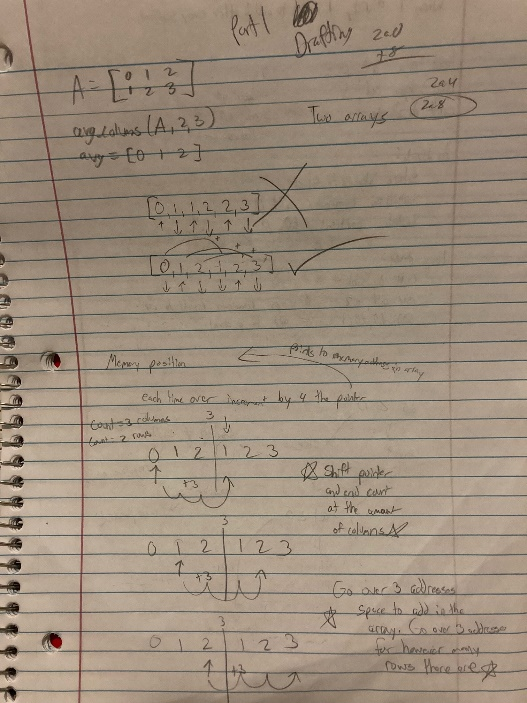 Part 1
Drafting
2a0
+8
A = [ 0 1 2
1 2 3 ]
2a4
2a8
Two arrays
avg_columns (A, 2, 3)
avg = [0 1 2]
[0, 1, 1, 2, 2, 3]
+ + +
[0, 1, 2, 1, 2, 3]
Memory position
points to
in array
each time over increment by 4 the pointer
Count = 3 columns
Count = 2 rows
3
0 1 2 1 2 3
+3
Shift pointer
and end count
at the amount
of columns
3
0 1 2 1 2 3
+3
Go over 3 addresses
Space to add in the
array. Go over 3 addresses
for however many
rows there are
3
0 1 2 1 2 3
+3